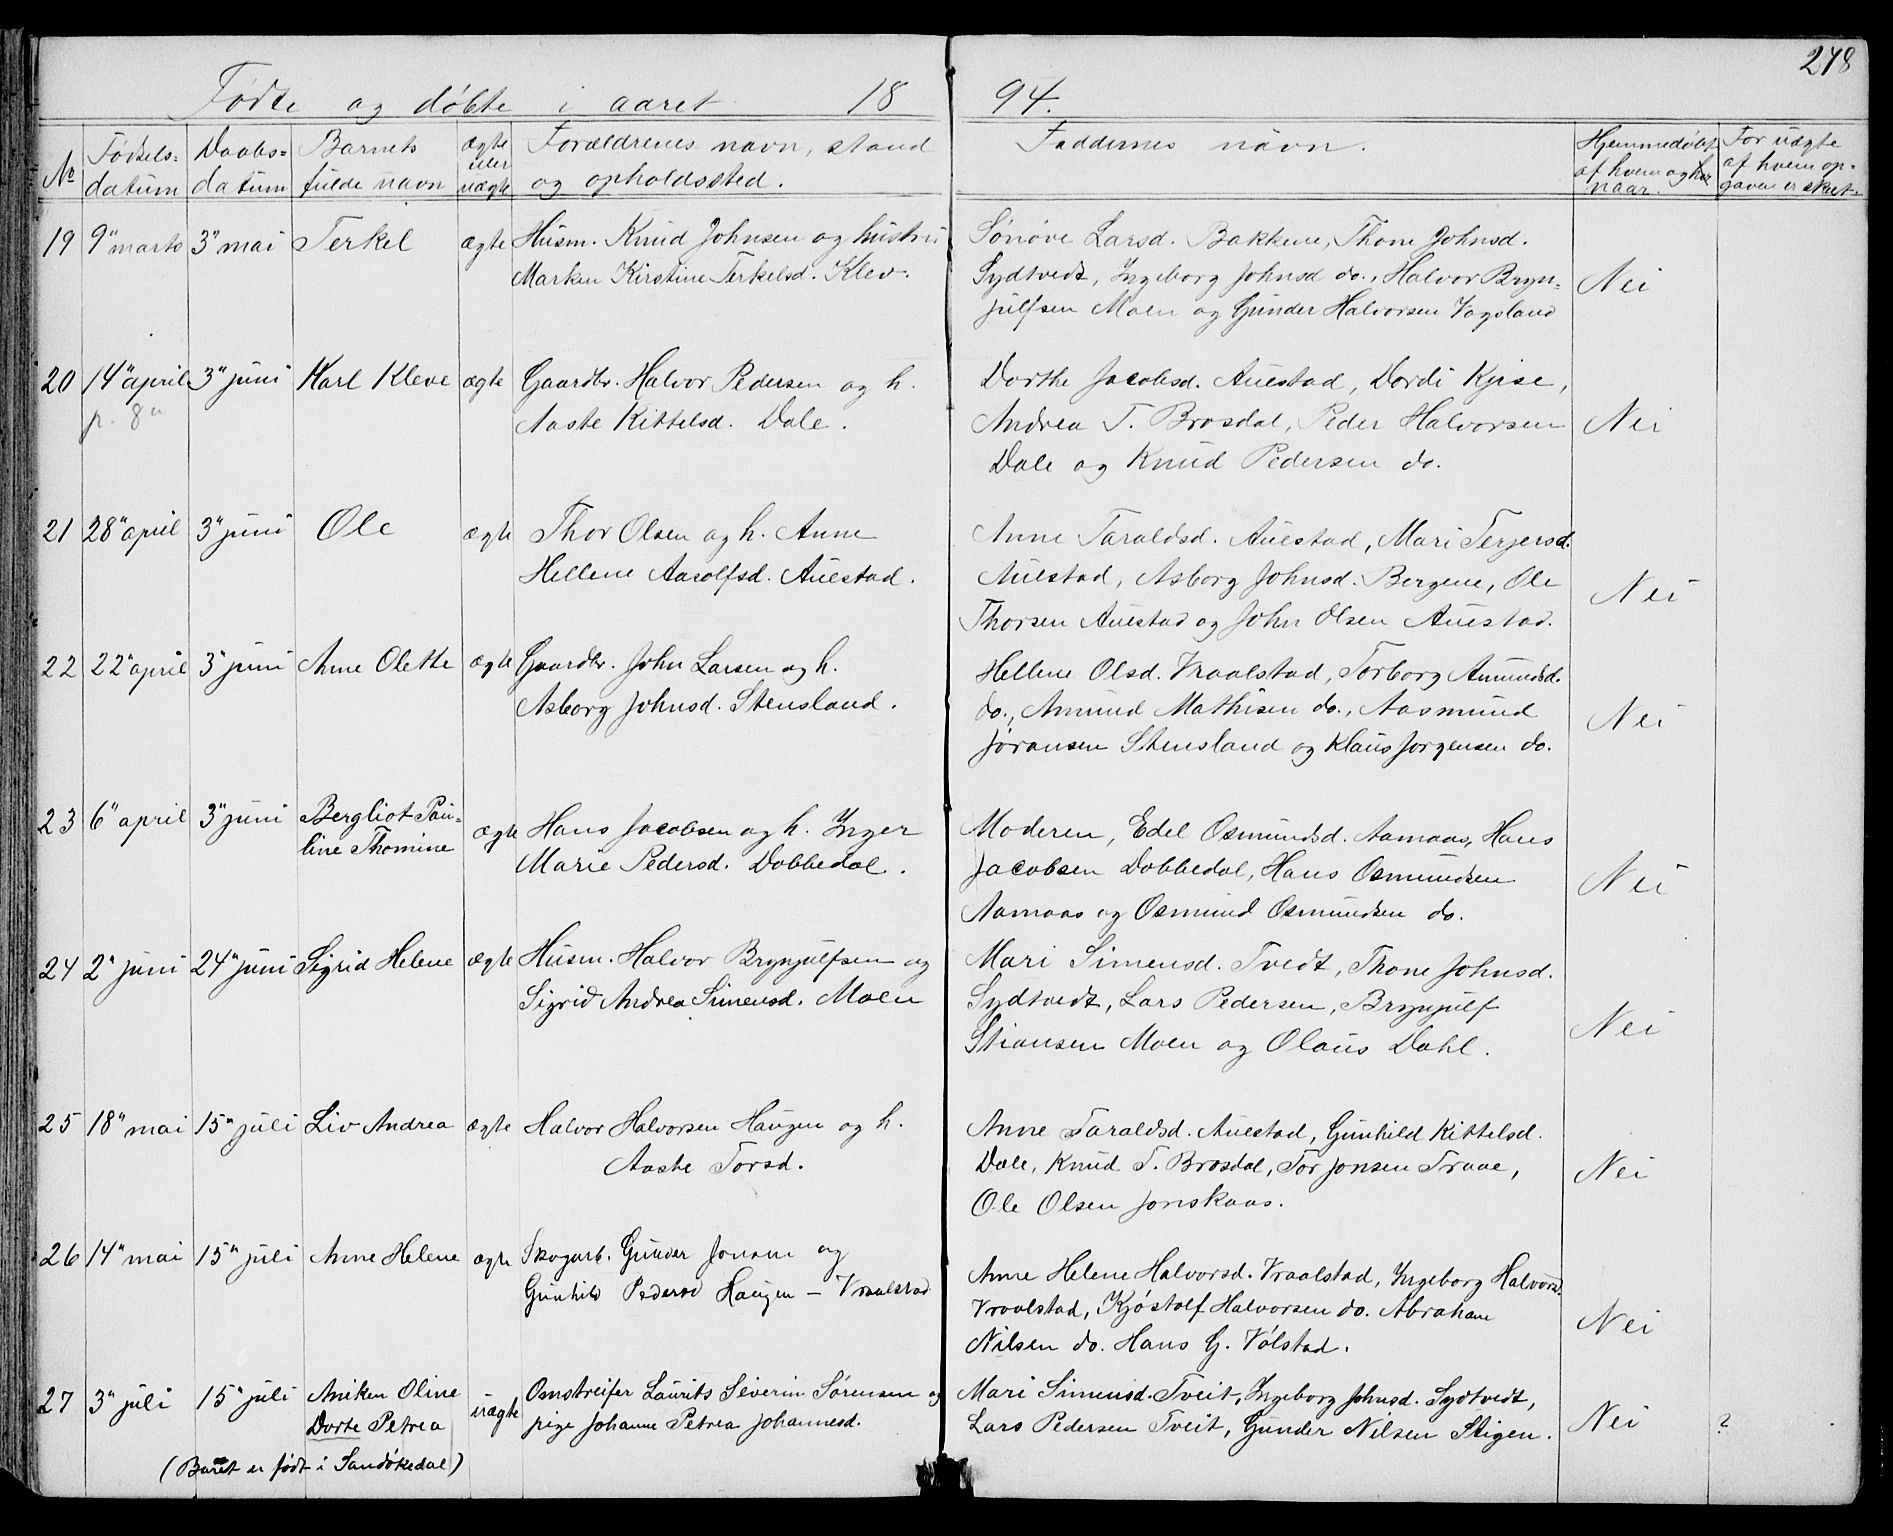 278
Fødte og døbte i aaret 18 94.
No
Fødsels-
datum
Daabs-
datum
Barnets
fulde navn
ægte
eller
uægte
Forældrenes navn, stand
og opholdssted.
Faddernes navn.
Hjemmedøbt
af hvem og
naar.
For uægte
af hvem op-
gaven er sket.
19 9" marts 3" mai Terkel ægte Husm. Knud Johnsen og hustru
Marken Kirstine Terkelsd. Klev.
Sønøve Larsd. Bakkene, Thone Johnsd.
Sydtvedt, Ingeborg Johnsd do., Halvor Bryn-
julfsen Moen og Gunder Halvorsen Vagsland
Nei
20 14" april 3" juni Karl Kleve ægte Gaardbr. Halvor Pedersen og h.
p. 8"
Aaste Kittelsd. Dale.
Dorthe Jacobsd. Auestad, Dordi Kjise,
Andrea T. Brosdal, Peder Halvorsen
Dale og Knud Pedersen do.
Nei
21 28" april 3" juni Ole ægte Thor Olsen og h. Anne
Hellene Aasolfsd. Auestad.
Anne Taraldsd. Auestad, Mari Terjersd.
Auestad, Asborg Johnsd. Bergene, Ole
Thorsen Auestad og John Olsen Auestad.
Nei
22 22" april 3" juni Anne Olette ægte Gaardbr. John Larsen og h.
Asborg Johnsd. Stensland.
Hellene Olsd. Vraalstad, Torborg Amundsd.
do., Amund Mathisen do., Aasmund
Jøransen Stensland og Klaus Jørgensen do.
Nei
23 6" april 3" juni Bergliot Pau-
line Thomine
ægte Hans Jacobsen og h. Inger
Marie Pedersd. Dobbedal.
Moderen, Edel Osmundsd. Aamaas, Hans
Jacobsen Dobbedal, Hans Osmundsen
Aamaas og Osmund Osmundsen do.
Nei
24 2" juni 24" juni Sigrid Helene ægte Husm. Halvor Brynjulfsen og
Sigrid Andrea Simensd. Moen
Mari Simensd. Tvedt, Thone Johnsd.
Sydtvedt, Lars Pedersen, Brynjulf
Stiansen Moen og Olaus Dahl.
Nei
25 18" mai 15" juli Liv Andrea ægte Halvor Halvorsen Haugen og h.
Aaste Torsd.
Anne Taraldsd. Auestad, Gunhild Kittelsd.
Dale, Knud T. Brosdal, Tor Jonsen Traae,
Ole Olsen Jonskaas.
Nei
26 14" mai 15" juli Anne Helene ægte Skogarb. Gunder Jonsen og
Gunhild Pedersd Haugen - Vraalstad
Anne Helene Halvorsd. Vraalstad, Ingeborg Halvorsd.
Vraalstad, Kjøstolf Halvorsen do. Abraham
Nilsen do. Hans G. Vølstad.
Nei
27 3" juli 15" juli Aniken Oline
Dorte Petrea
uægte Omstreifer Laurits Severin Sørensen og
pige Johanne Petrea Johannesd.
Mari Simensd. Tveit, Ingeborg Johnsd. Sydtvedt,
Lars Pedersen Tveit, Gunder Nilsen Stigen.
Nei ?
(Barnet er født i Sandøkedal)